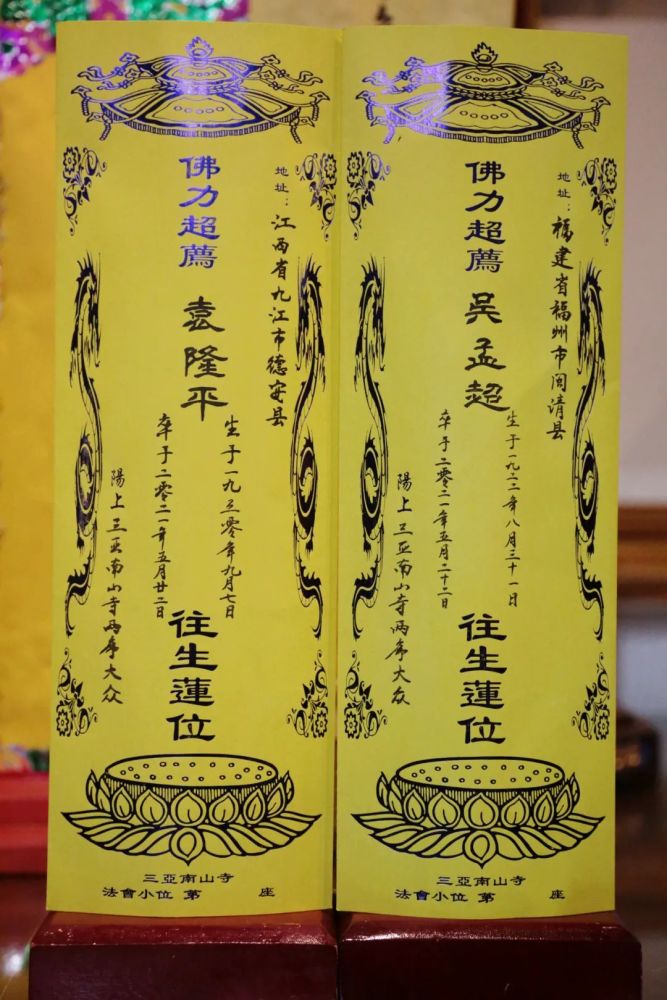 地址：江西省九江市德安县
佛力超薦
袁隆平
生于一九三零年九月七日
卒于二零二一年五月廿二日
往生蓮位
陽上三亚南山寺两序大众
三亞南山寺
法會小位 第 座
地址：福建省福州市闽清县
佛力超薦
吴孟超
生于一九二二年八月三十一日
卒于二零二一年五月二十二日
往生蓮位
陽上三亚南山寺两序大众
三亞南山寺
法會小位 第 座